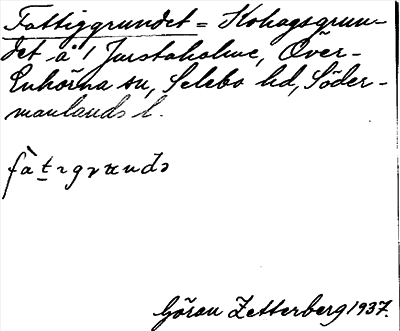 Fattiggrundet = Kohagsgrun-
det å 1 Jurstaholme, Över-
Enhörna sn, Selebo hd, Söder-
manlands l.
fàtıgrundə
Göran Zetterberg 1937.